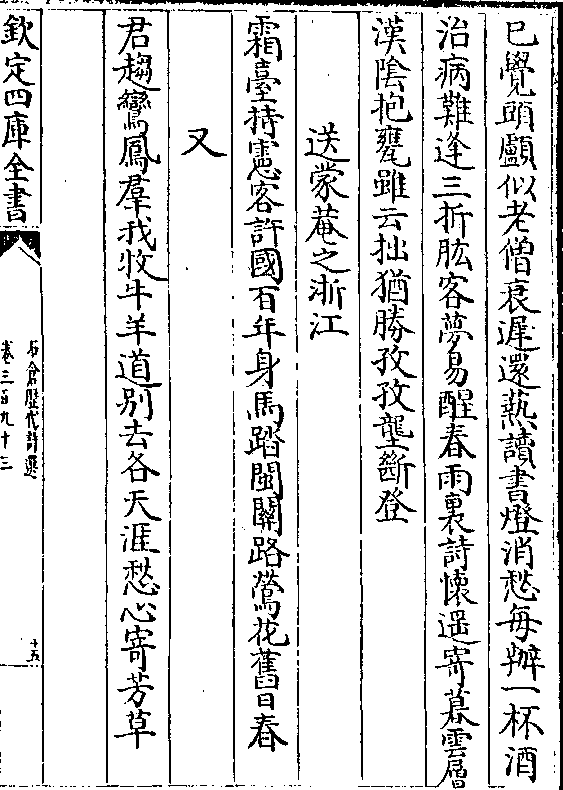 已覺頭顱似老僧衰遲還爇讀書燈消愁每辦一杯酒
治病難逢三折肱客夢易醒春雨裏詩懷遥寄暮雲層
漢陰抱甕雖云拙猶勝孜孜壟斷登
送蒙菴之浙江
霜臺持憲客許國百年身馬踏閩關路鶯花舊日春
又
君趨鸞鳳羣我牧牛羊道别去各天涯愁心寄芳草
欽定四庫全書
石倉歷代詩選
卷三百九十三
十五